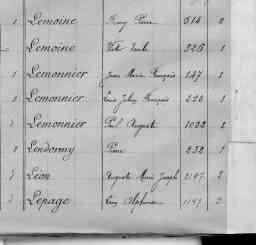 1 Lemoine Pierre 514 0
Lemoine 325 1
1 Lemonnier Jean Marie François 147 1
1 Lemonnier Jules François 220 1
Lemonnier Paul Auguste 1022 2
1 Lendormy Pierre 232 1
Léon Auguste Marie Joseph 2147 2
Lepage Alphonse 1147